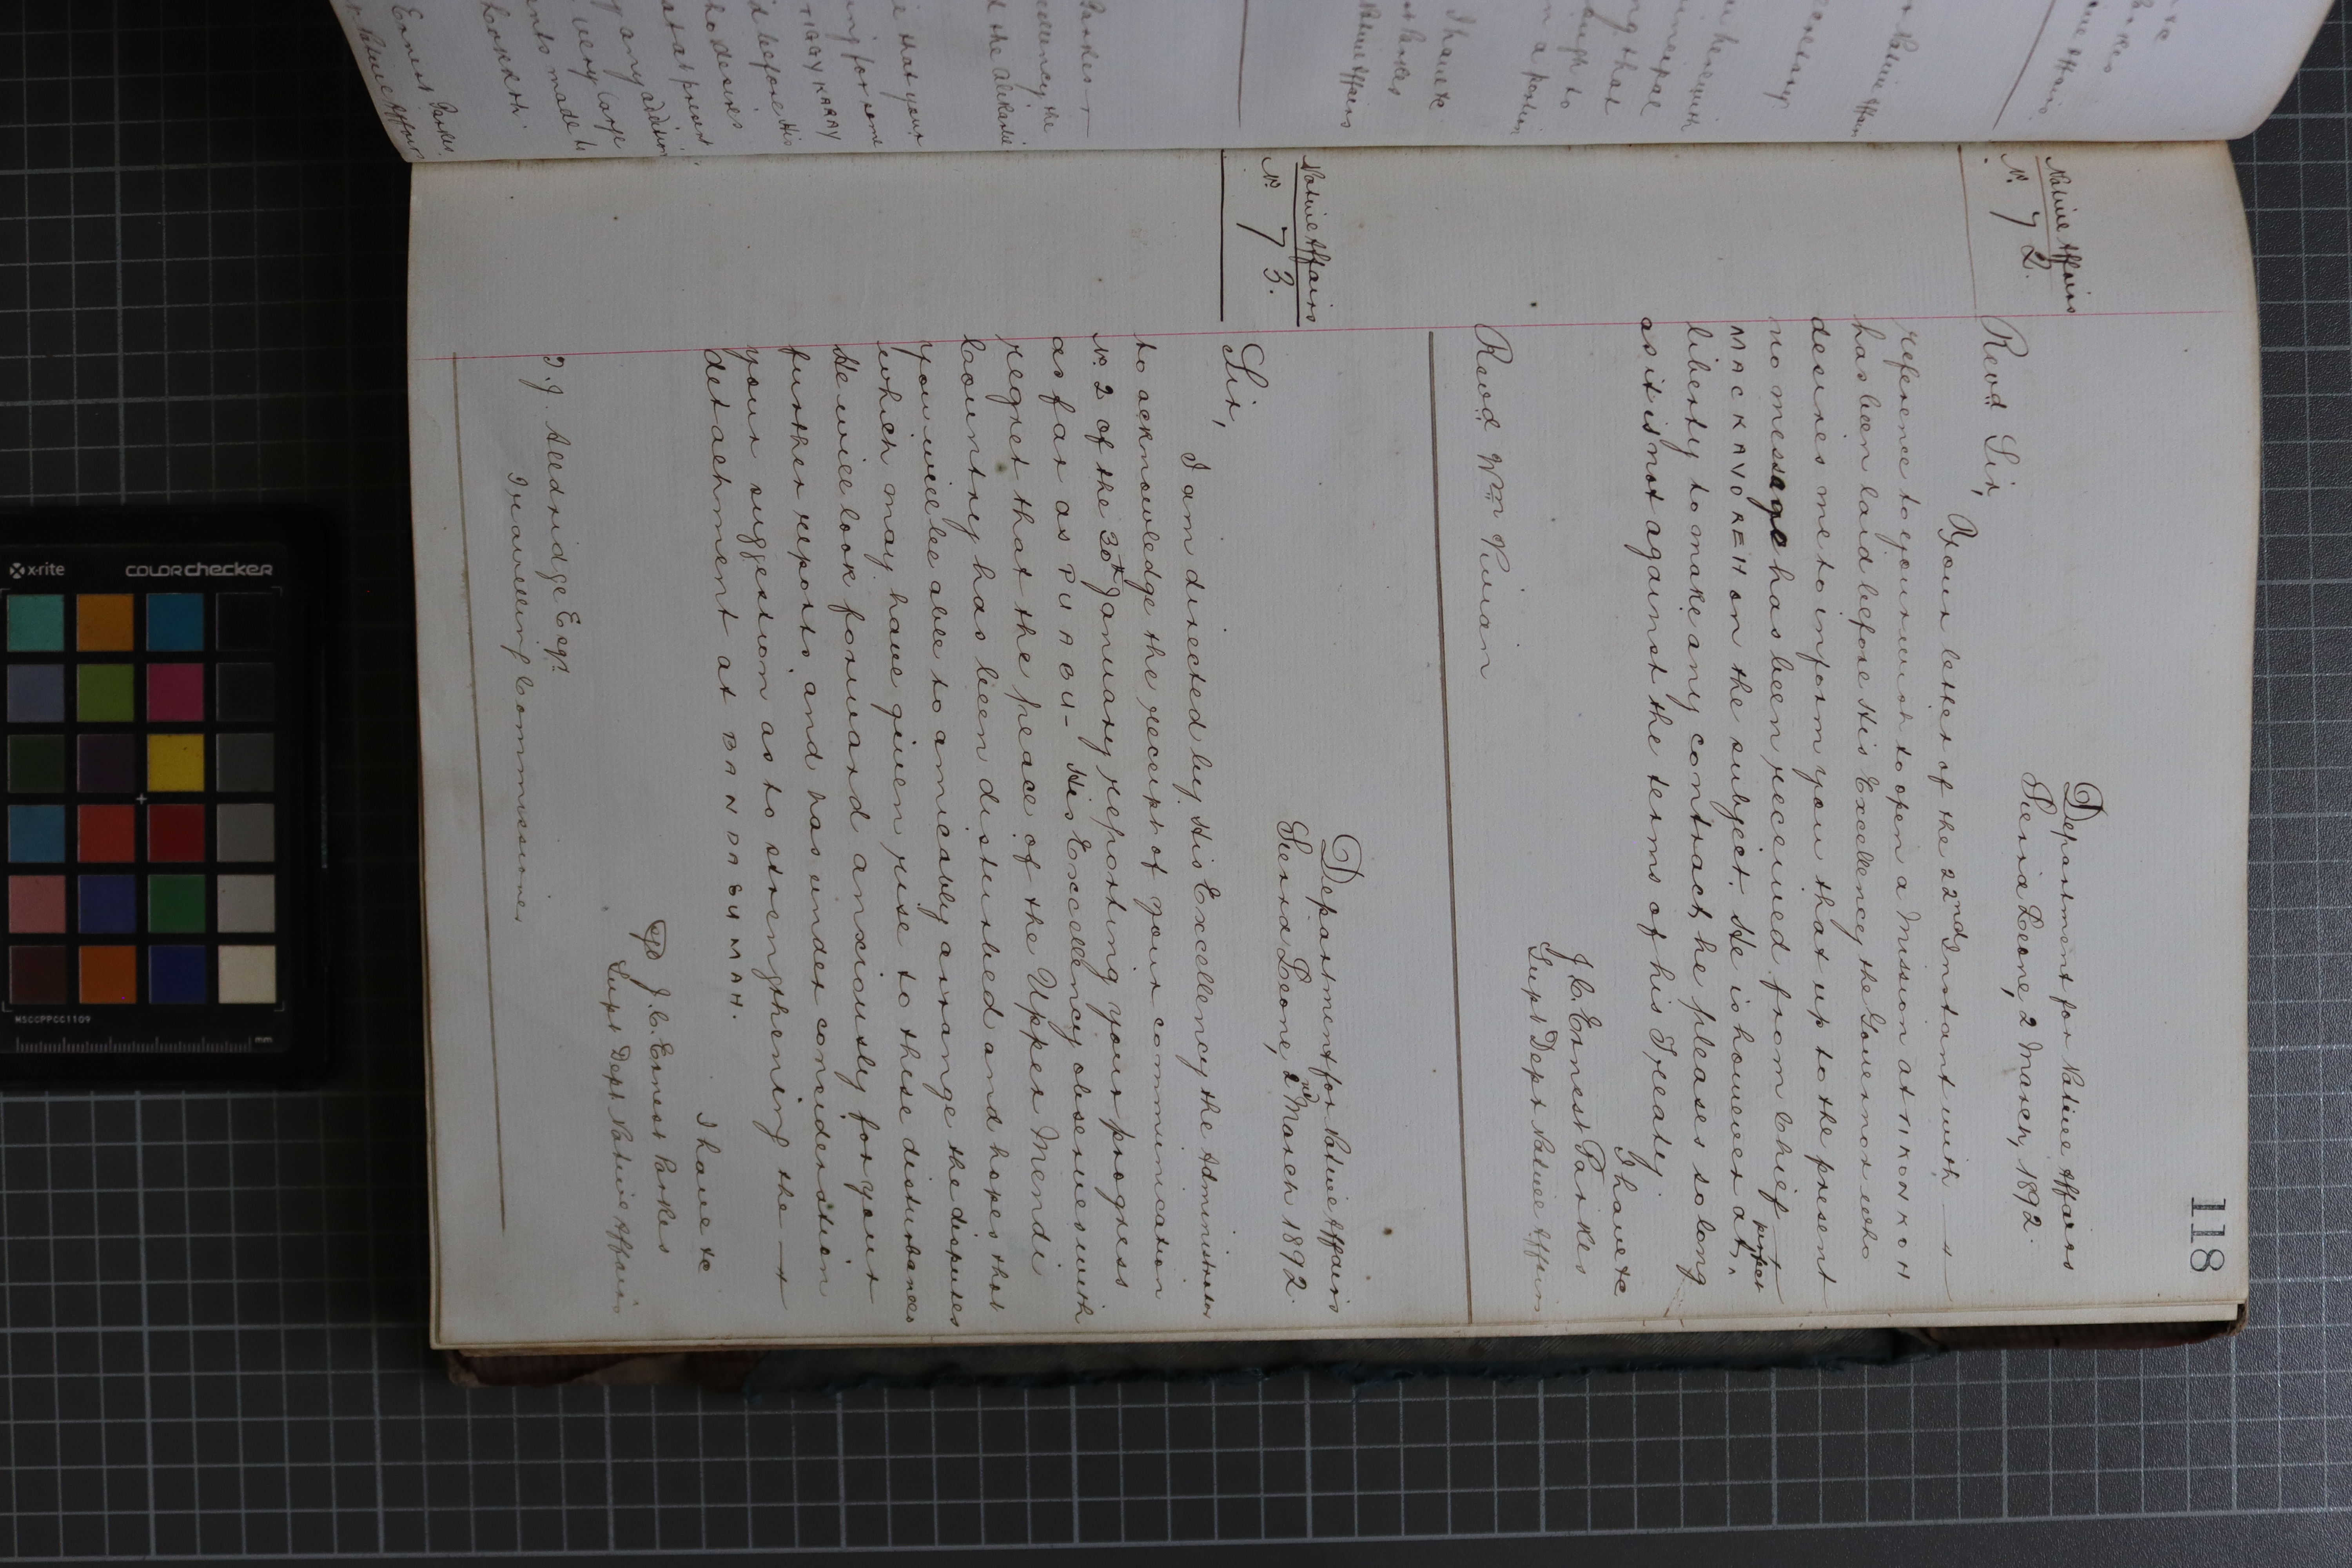 118
Native Affairs
No. 72.
Department for Native Affairs
Sierra Leone, 2 March, 1892.
Revd Sir,
Your letter of the 22nd Instant with
reference to your wish to open a Mission at TIKONKOH
has been laid before His Excellency the Governor who
desires me to inform you that up to the present
no message has been received from Chief
MACKAVOREH on the subject. He is however at perfect
liberty to make any contract he pleases so long
as it is not against the terms of his Treaty
I have &c
J. C. Ernest Parkes
Supt Dept Native Affairs
Revd Wm Vivian
Native Affairs
No. 73.
Department for Native Affairs
Sierra Leone, 2nd March 1892.
Sir,
I am directed by His Excellency the Administrator
to acknowledge the receipt of your communication
No. 2 of the 30th January reporting your progress
as far as - His Excellency observes with
regret that the peace of the Upper Mendi
Country has been disturbed and hopes that
you will be able to amicably arrange the disputes
which may have given rise to these disturbances
He will look forward anxiously for your
further reports, and has under consideration
your suggestion as to strengthening the
detachment at BANDASUMAH.
I have &c
sgd J. C. Ernest Parkes
Supt Dept Native Affairs
T. J. Alldridge Esqr.
Travelling Commissioner
x-rite
colorchecker
MSCCPPCC1109
mm
Ernest Parkes.
Native Affairs
very large
any addition
at at present
who desires
d before His
ing for some
e that your
d the Alikarlie
cellency the
Parkes
Native Affairs
t Parkes
I have &c
in a portion
ng that
municipal
herewith
Native Affairs